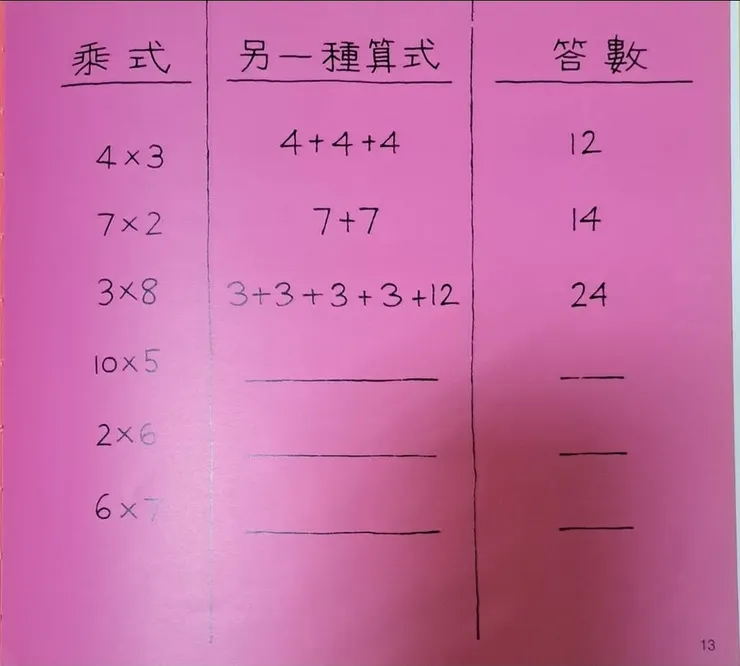 乘式 另一種算式 答數
4×3 4+4+4 12
7×2 7+7 14
3×8 3+3+3+3+12 24
10×5
2×6
6×7
13